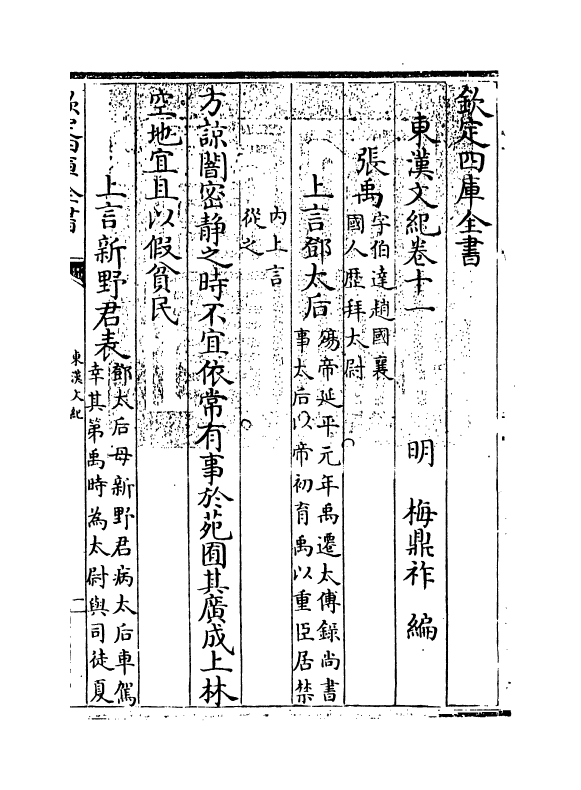 欽定四庫全書
東漢文紀卷十一
明 梅鼎祚 編
張禹
字伯達趙國襄
國人歴拜太尉
上言鄧太后
殤帝延平元年禹遷太傅錄尚書
事太后以帝初育禹以重臣居禁
内上言
從之
方諒闇宻静之時不宜依常有事於苑囿其廣成上林
空地宜且以假貧民
上言新野君表
鄧太后母新野君病太后車駕
幸其第禹時為太尉與司徒夏
欽定四庫全書
東漢文紀